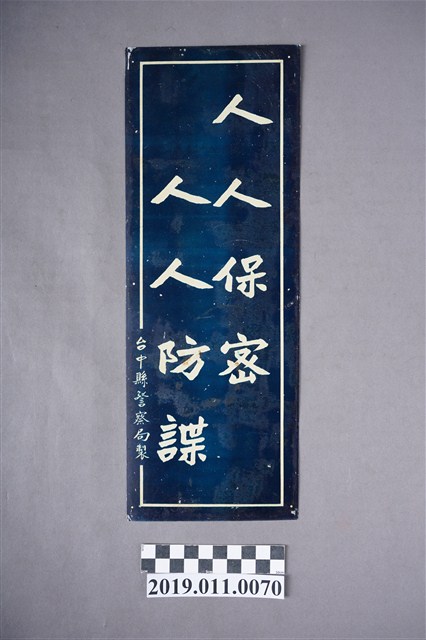 人人保密
人人防諜
台中縣警察局製
2019.011.0070